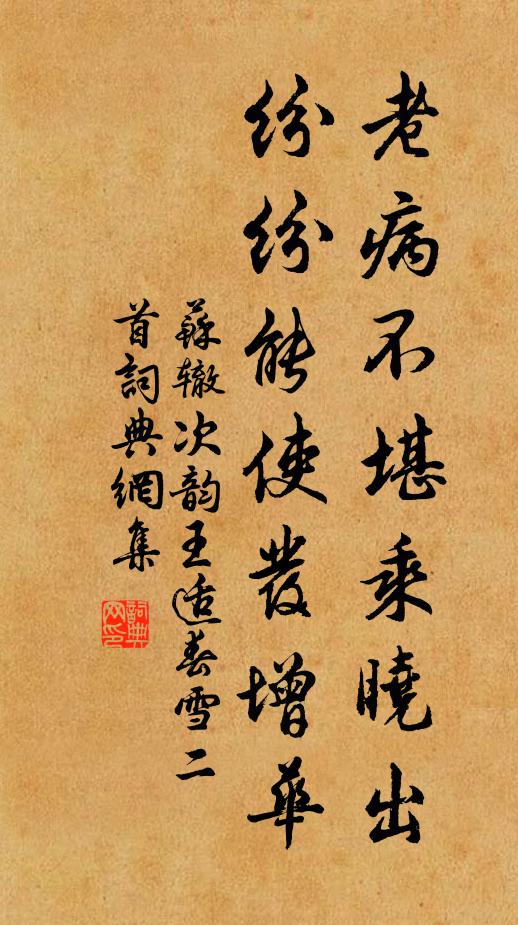 老病不堪乘曉出
紛紛能使發增華
蘇辙次韵王适春雪二
首詞典網集
詞典
网印